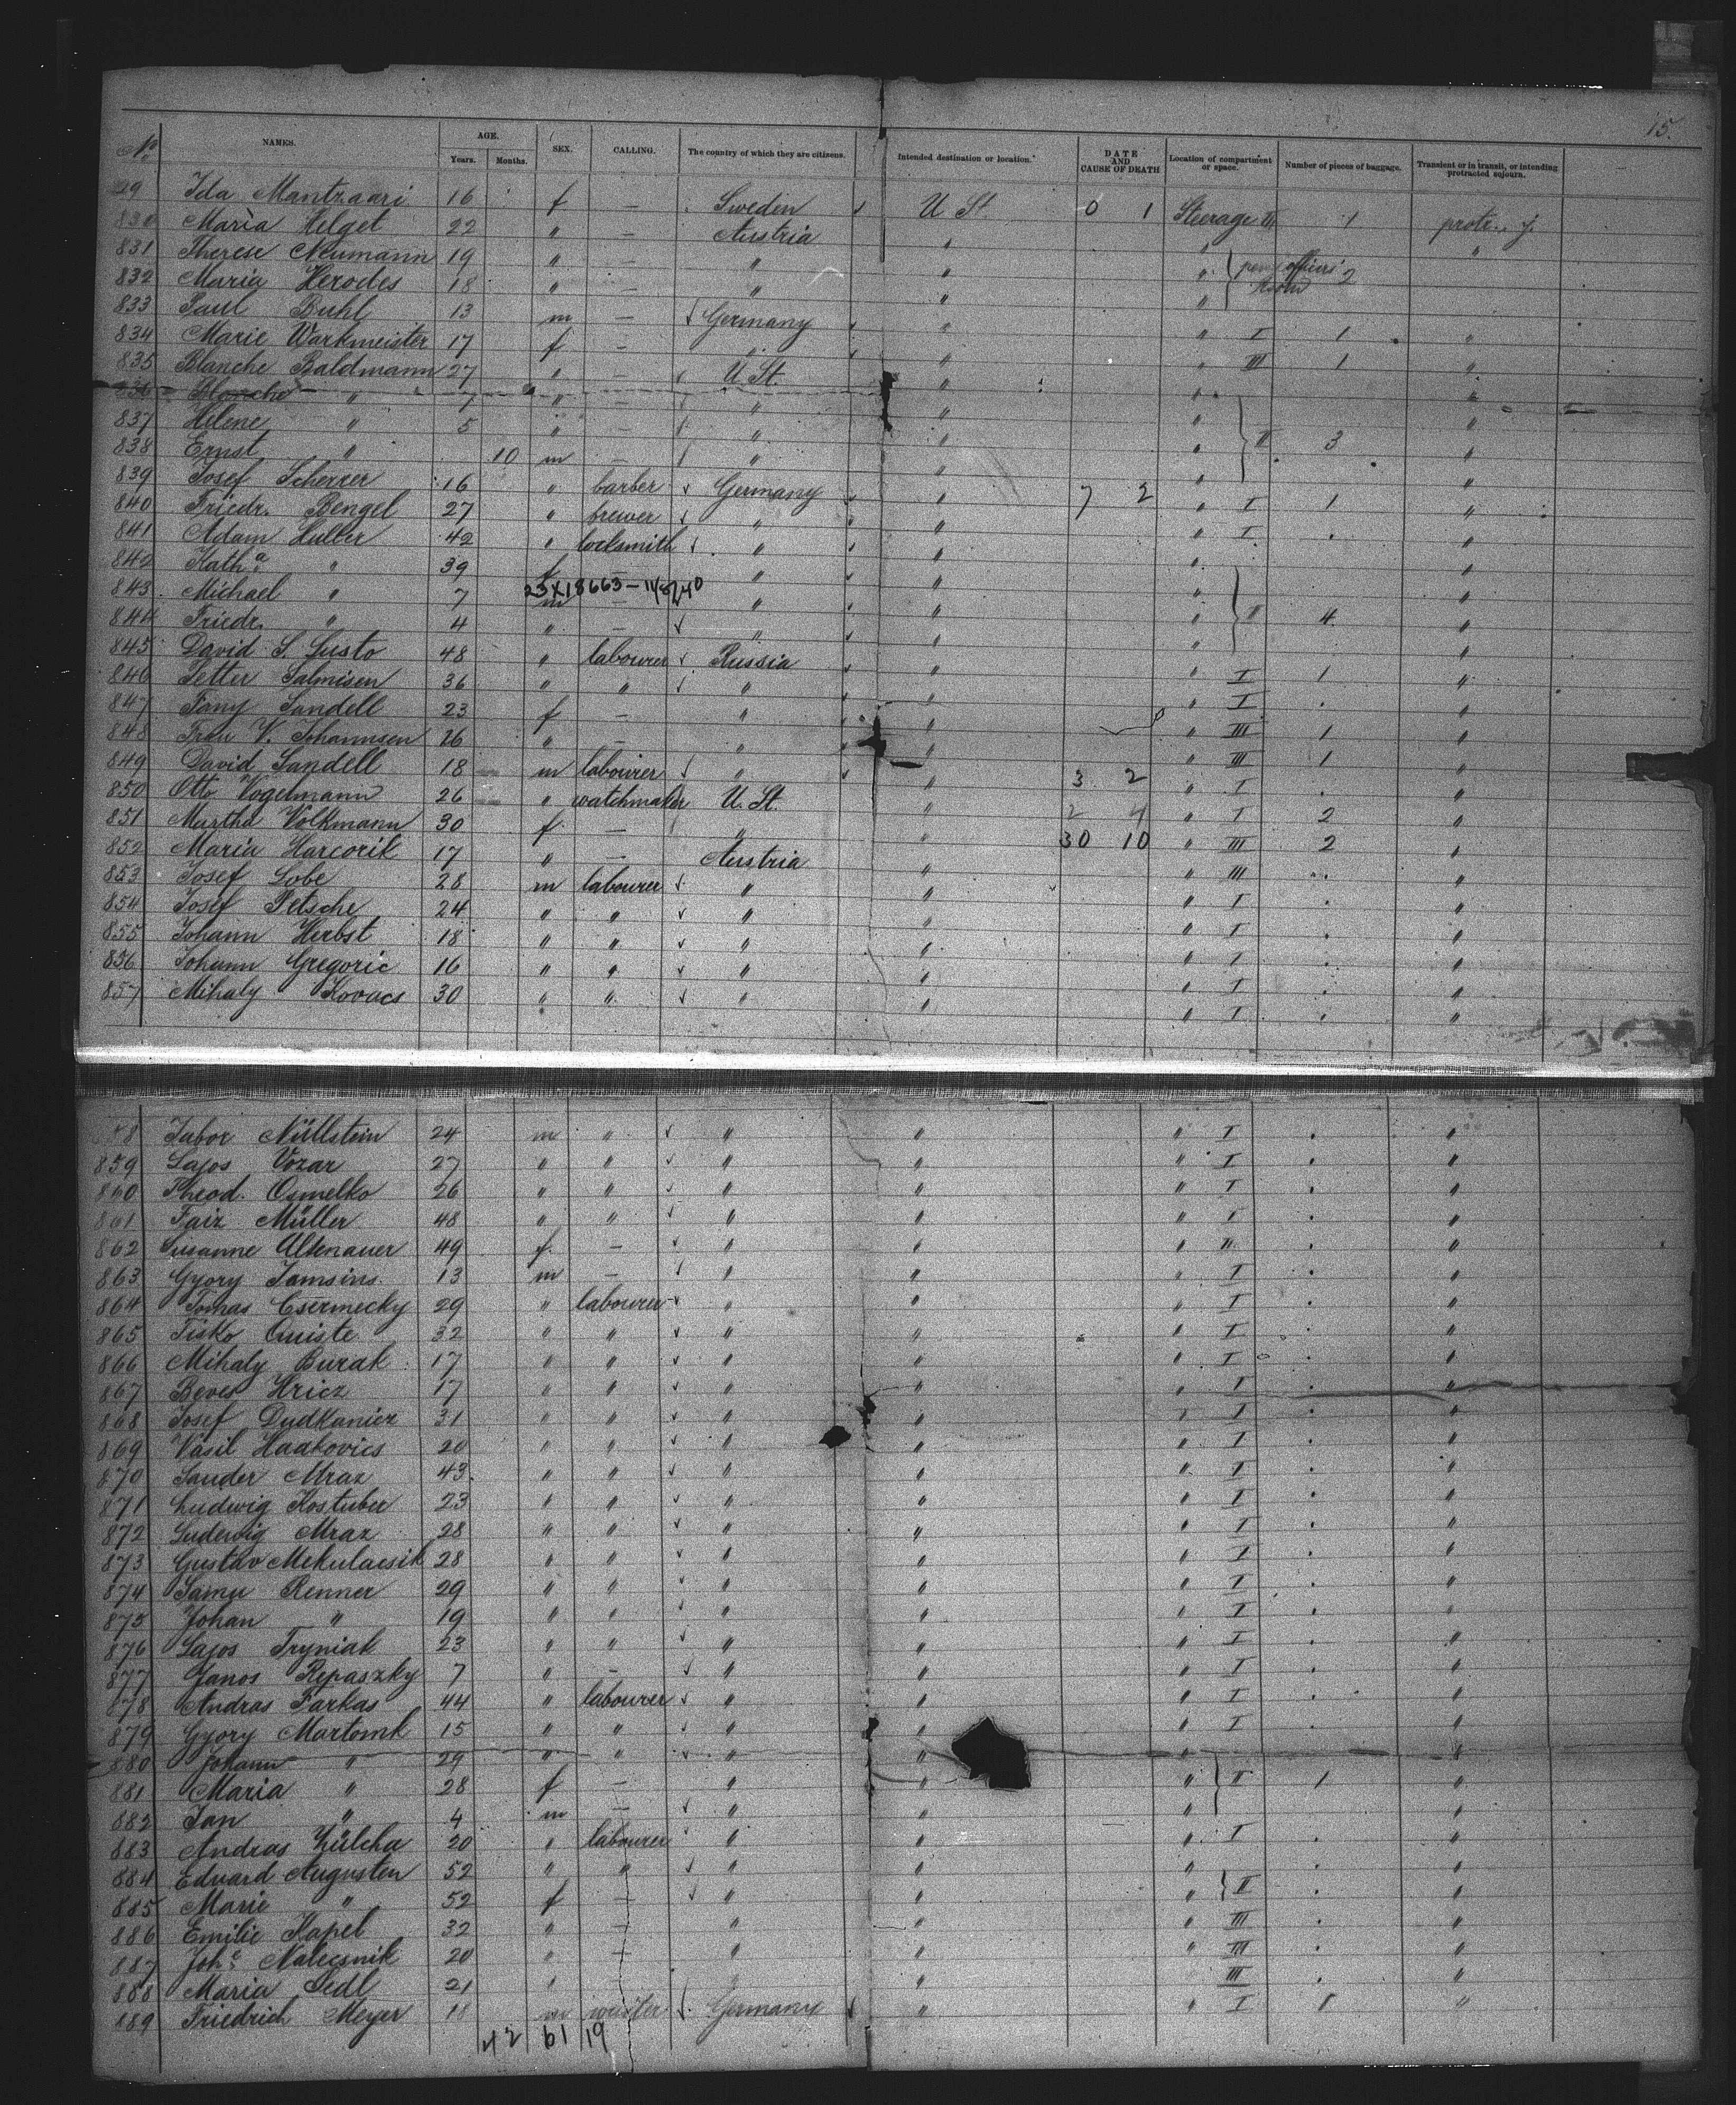 15.
No. NAMES. AGE. Years. Months. SEX. CALLING. The country of which they are citizens. Intended destination or location. DATE AND CAUSE OF DEATH Location of compartment or space. Number of pieces of baggage. Transient or in transit, or intending protracted sojourn.
29 Ida Mantzaari 16 f — Sweden U St. 0 1 Steerage III 1
830 Maria Helget 22 " — Austria " " "
831 Therese Neumann 19 " — " " " officers' 2
832 Maria Herodes 18 " — " " "
833 Paul Buhl 13 m — Germany " " I 1 "
834 Marie Warkmeister 17 f — " " " III 1 "
835 Blanche Baldmann 27 " — U. St. " " "
836 Blanche " 7 " — " " " "
837 Helene " 5 " — " " " II 3 "
838 Ernst " 10 m — " " " "
839 Josef Scherrer 16 " barber Germany " 7 2 " I 1 "
840 Friedr. Bengel 27 " brewer " " " I "
841 Adam Huller 42 " locksmith " " " "
842 Kath.a " 39 f " " " "
23X18663 —
843 Michael " 7 m — " " " II 4 "
844 Friedr. " 4 " — " " " "
845 David S. Susto 48 " labourer Russia " " I 1 "
846 Petter Salmisen 36 " " " " " I "
847 Fany Sandell 23 f — " " " III 1 "
848 Frau V. Johannsen 26 " — " " " III 1 "
849 David Sandell 18 m labourer " " 3 2 " I "
850 Otto Vogelmann 26 " watchmaker U. St. " 2 4 " I 2 "
851 Martha Volkmann 30 f — " " 30 10 " III 2 "
852 Maria Harcorik 17 " — Austria " " III "
853 Josef Lobe 28 m labourer " " " I "
854 Josef Petsche 24 " " " " " I "
855 Johann Herbst 18 " " " " " I "
856 Johann Gregoric 16 " " " " " I "
857 Mihaly Kovacs 30 " " " " " I "
8 Tabor Nüllstein 24 m " " " " I "
859 Lajos Vozar 27 " " " " " I "
860 Theod. Osmelko 26 " " " " " I "
861 Faiz Müller 48 " " " " " I "
862 Susanne Altenauer 49 f. — " " " II "
863 Gyory Jamsins 13 m — " " " I "
864 Tomas Csermecky 29 " labourer " " " I "
865 Tisko Oniste 32 " " " " " I "
866 Mihaly Burak 17 " " " " " I "
867 Beves Hricz 17 " " " " " I "
868 Josef Dudkanicz 31 " " " " " I "
869 Vasil Haakovics 20 " " " " " I "
870 Sander Mraz 43 " " " " " I "
871 Ludwig Kostuber 23 " " " " " I "
872 Ludewig Mraz 28 " " " " " I "
873 Gustav Mekulacsik 28 " " " " " I "
874 Samu Renner 29 " " " " " I "
875 Johan " 19 " " " " " I "
876 Lajos Tryniak 23 " " " " " I "
877 Janos Repaszky 7 " — " " " I "
878 Andras Farkas 44 " labourer " " " I "
879 Gyory Martomk 15 " " " " " I "
880 Johann " 29 " " " " " "
881 Maria " 28 f — " " " II 1 "
882 Jan " 4 m — " " " "
883 Andras Zülcha 20 " labourer " " " I "
884 Eduard Augusten 52 " " " " " "
885 Marie " 52 f — " " " II "
886 Emilie Kapel 32 " — " " " III "
887 Joh.e Nalecsnik 20 " — " " " III "
888 Maria Sedl 21 " — " " " III "
889 Friedrich Meyer 18 m waiter Germany " " I 1 "
42 61 19